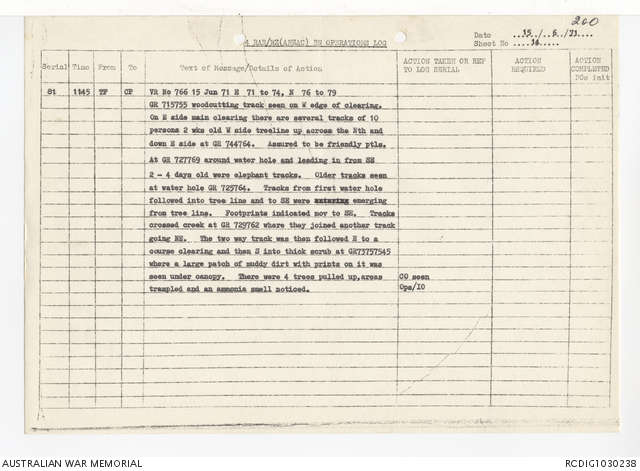 260
4 RAR/NZ(ANZAC) BN OPERATIONS LOG
Date ...15../..6../71...
Sheet No ...16......
Serial Time From To Text of Message/Details of Action ACTION TAKEN OR REF TO LOG SERIAL ACTION REQUIRED ACTION COMPLETED DOs init
81 1145 TF CP VR No 766 15 Jun 71 E 71 to 74, N 76 to 79
GR 715755 woodcutting track seen on W edge of clearing.
On E side main clearing there are several tracks of 10
persons 2 wks old W side treeline up across the Nth and
down E side at GR 744764. Assured to be friendly ptls.
At GR 727769 around water hole and leading in from SE
2 - 4 days old were elephant tracks. Older tracks seen
at water hole GR 725764. Tracks from first water hole
followed into tree line and to SE were entering emerging
from tree line. Footprints indicated mov to SE. Tracks
crossed creek at GR 729762 where they joined another track
going NE. The two way track was then followed E to a
course clearing and then S into thick scrub at GR73757545
where a large patch of muddy dirt with prints on it was
seen under canopy. There were 4 trees pulled up,areas
trampled and an ammonia smell noticed.
CO seen
Ops/IO
AUSTRALIAN WAR MEMORIAL
RCDIG1030238